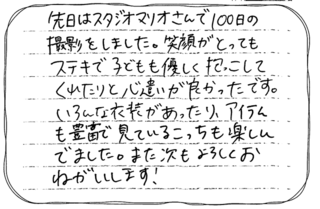 先日はスタジオマリオさんで100日の
撮影をしました。笑顔がとっても
ステキで子どもも優しく抱っこして
くれたりと心遣いが良かったです。
いろんな衣装があったり、アイテム
も豊富で見ているこっちも楽しん
でました。また次もよろしくお
ねがいします!